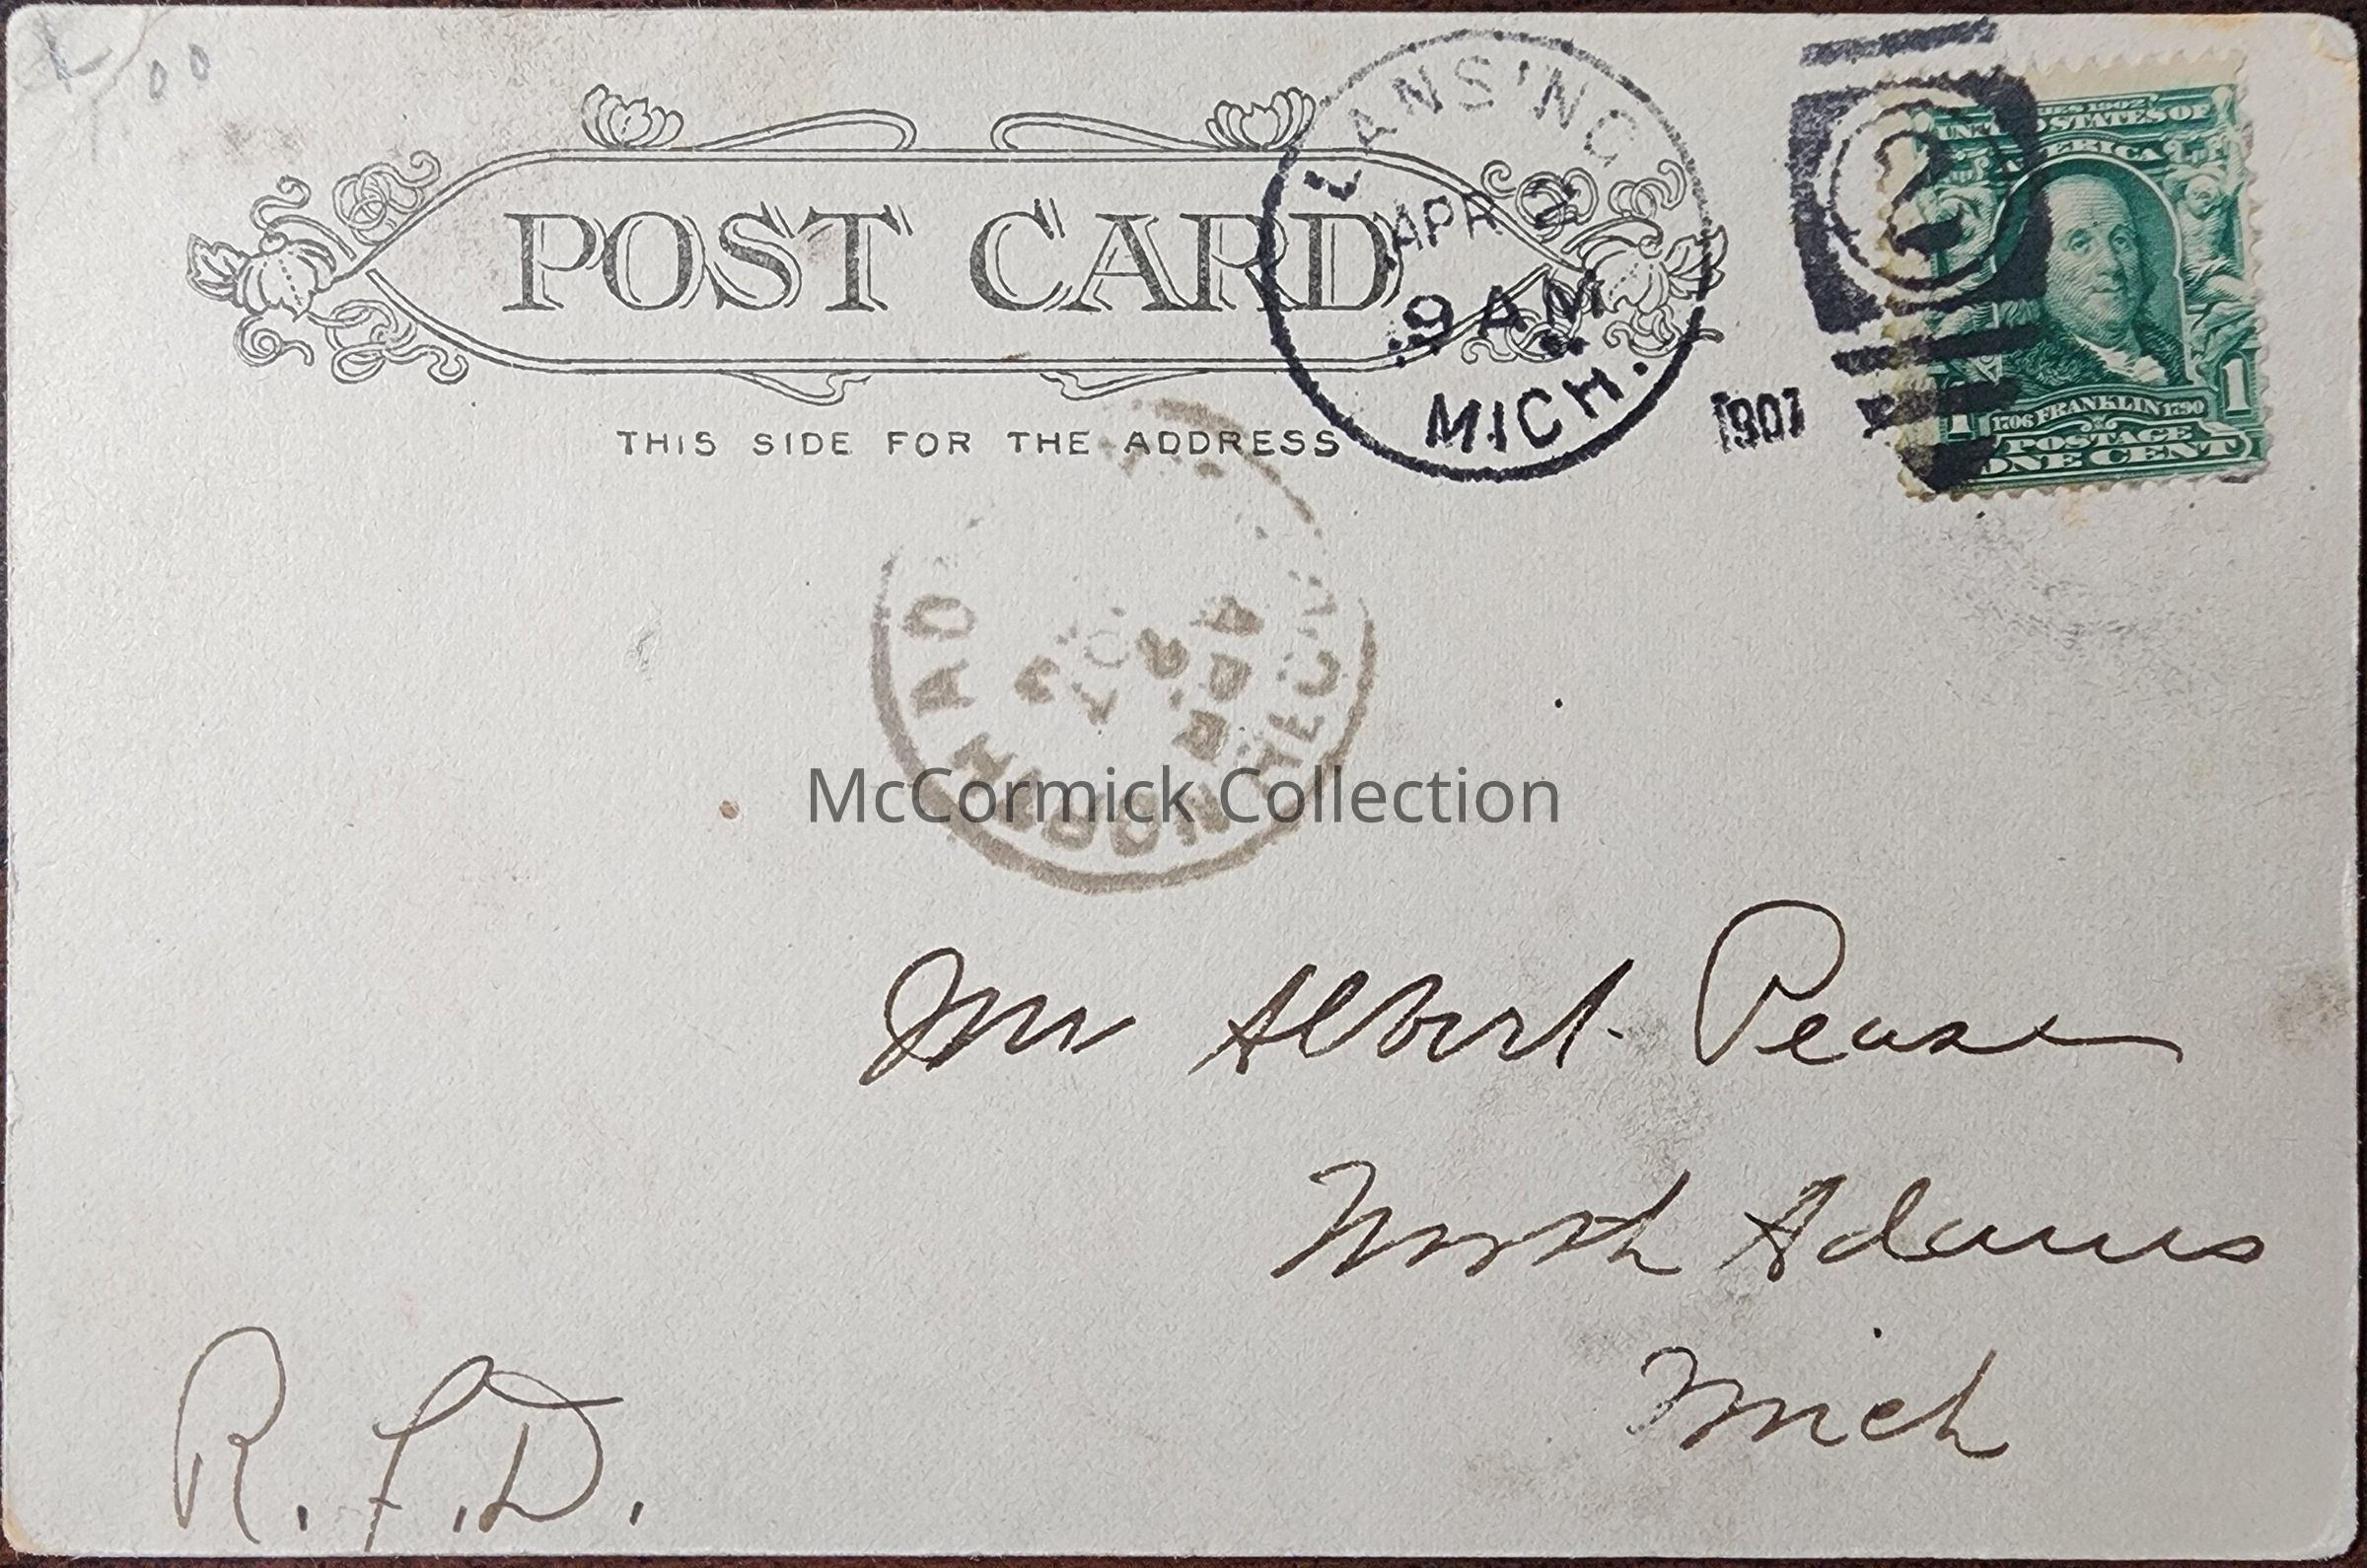 1/00
POST CARD
THIS SIDE FOR THE ADDRESS
LANSING
APR 2
9 AM
MICH.
1907
2
SERIES 1902
UNITED STATES OF
AMERICA
1706 FRANKLIN 1790
1 1
POSTAGE
ONE CENT
NORTH AD
MICH
APR
2
07
McCormick Collection
Mr Albert Pease
North Adams
Mich
R.F.D.